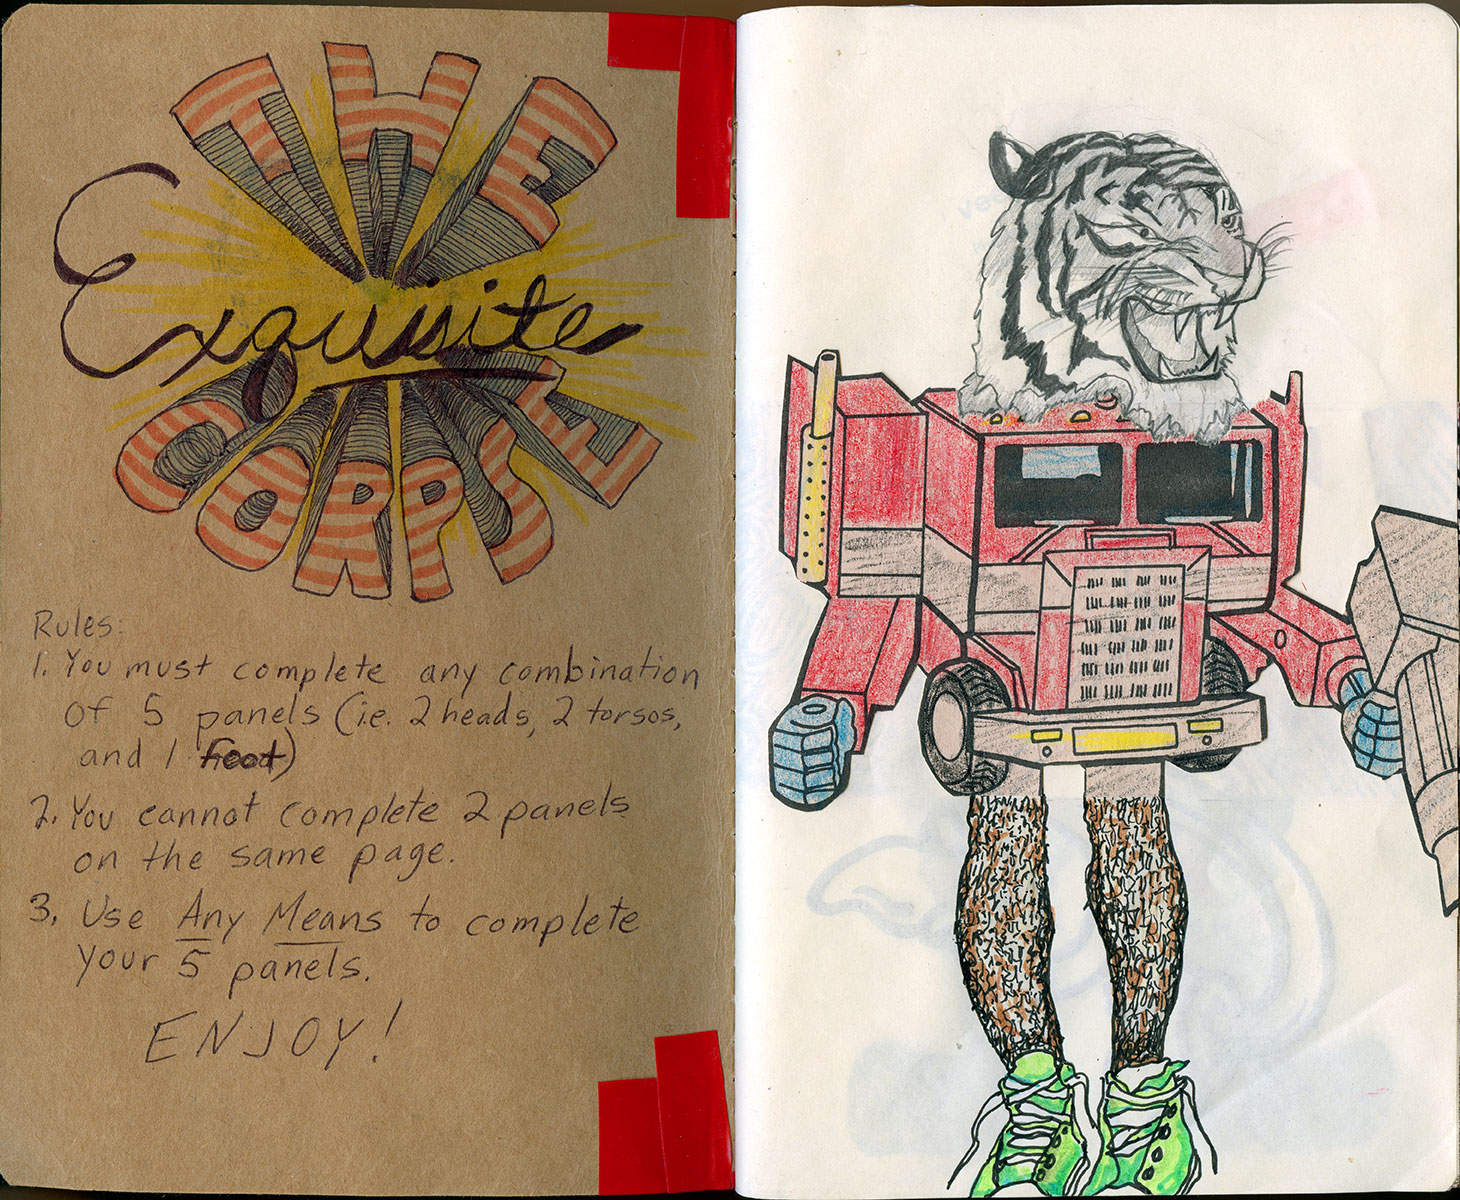 THE
Exquisite
CORPSE
Rules:
1. You must complete any combination
of 5 panels (i.e. 2 heads, 2 torsos,
and 1 foot)
2. You cannot complete 2 panels
on the same page.
3. Use Any Means to complete
your 5 panels.
ENJOY!